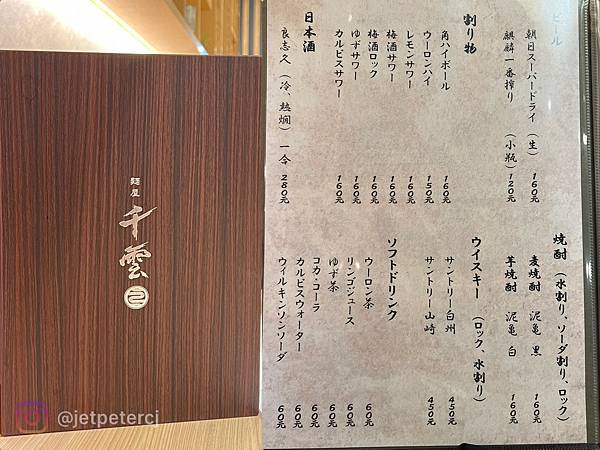 麺屋
千雲
@jetpeterci
ビール
朝日スーパードライ（生） 160元
麒麟一番搾り （小瓶） 120元
割り物
角ハイボール 160元
ウーロンハイ 150元
レモンサワー 160元
梅酒サワー 160元
梅酒ロック 160元
ゆずサワー 160元
カルピスサワー 160元
日本酒
良志久（冷、熱燗）一合 280元
焼酎（水割り、ソーダ割り、ロック）
麦焼酎 泥亀 黒 160元
芋焼酎 泥亀 白 160元
ウイスキー（ロック、水割り）
サントリー白州 450元
サントリー山崎 450元
ソフトドリンク
ウーロン茶 60元
リンゴジュース 60元
ゆず茶 60元
コカ・コーラ 60元
カルピスウォーター 60元
ウィルキンソンソーダ 60元